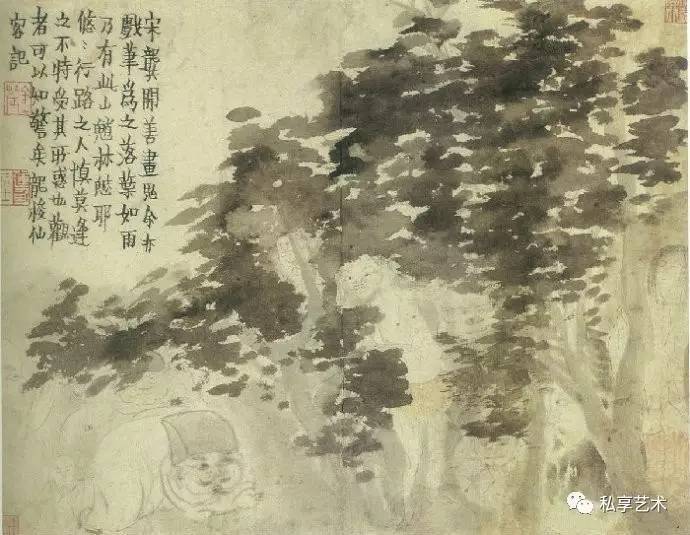 宋龔開善畫鬼余亦
戲筆爲之落葉如雨
乃有此山魈林魅耶
悠〻行路之人慎莫逢
之不特受其所惑也觀
者可以知警矣龍梭仙
客記
私享艺术